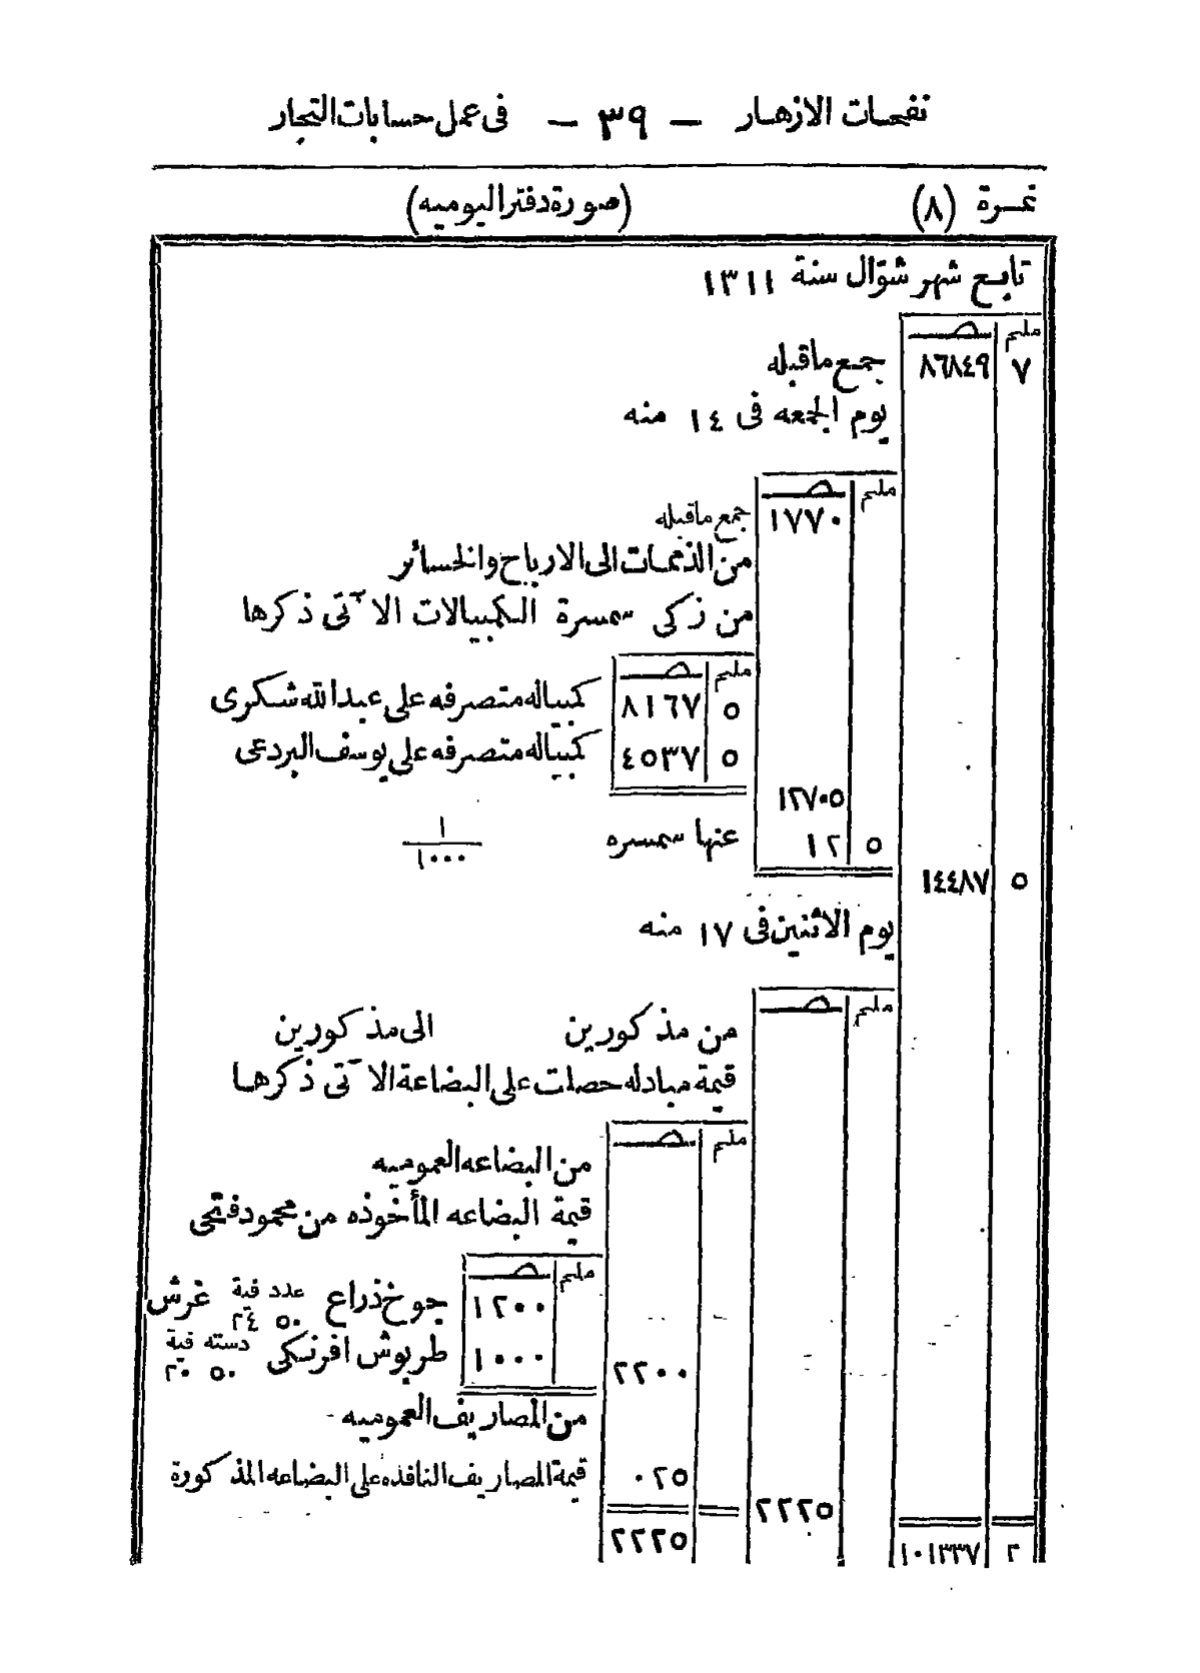 نفحات الازهار — ٣٩ — فى عمل حسابات التجار
نمرة (٨) (صورة دفتر اليوميه)
تابع شهر شوّال سنة ١٣١١
مليم صـ
٧ ٨٦٨٤٩ جمع ماقبله
يوم الجمعه فى ١٤ منه
مليم صـ
١٧٧٠ جمع ماقبله
من الذممات الى الارباح والخسائر
من زكى سمسرة الكمبيالات الآتى ذكرها
مليم صـ
٥ ٨١٦٧ كمبياله متصرفه على عبدالله شكرى
٥ ٤٥٣٧ كمبياله متصرفه على يوسف البردعى
١٢٧٠٥
٥ ١٢ عنها سمسره ١/١٠٠٠
٥ ١٤٤٨٧
يوم الاثنين فى ١٧ منه
مليم صـ
من مذكورين الى مذكورين
قيمة مبادله حصلت على البضاعة الآتى ذكرها
مليم صـ
من البضاعه العموميه
قيمة البضاعه المأخوذه من محمود فتحى
مليم صـ
١٢٠٠ جوخ ذراع عدد ٥٠ فية ٢٤ غرش
١٠٠٠ طربوش افرنكى دسته ٥٠ فية ٢٠
٢٢٠٠
من المصاريف العموميه
٠٢٥ قيمة المصاريف النافذه على البضاعه المذكورة
٢٢٢٥
٢٢٢٥
٢ ١٠١٣٣٧